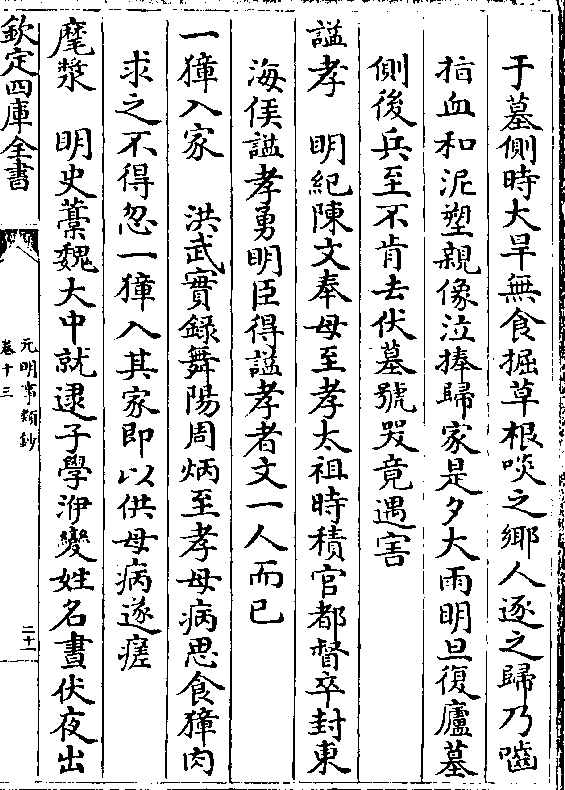 于墓側時大旱無食掘草根啖之鄉人逐之歸乃嚙
指血和泥塑親像泣捧歸家是夕大雨明旦復廬墓
側後兵至不肯去伏墓號哭竟遇害
諡孝　明紀陳文奉母至孝太祖時積官都督卒封東
海侯諡孝勇明臣得諡孝者文一人而已
一獐入家　洪武實錄舞陽周炳至孝母病思食獐肉
求之不得忽一獐入其家即以供母病遂瘥
麾漿　明史藁魏大中就逮子學洢變姓名晝伏夜出
欽定四庫全書
元明事類鈔
卷十三
二十一